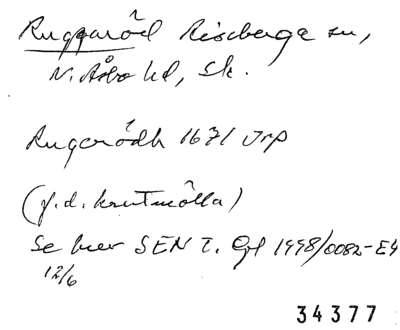 Ruggaröd Riseberga sn,
N. Åsbo hd, Sk.
Rugerödh 1671 Jrp
(f.d. krutmölla)
Se brev SEN t. Gpl 1998/0082-E4
12/6
34377